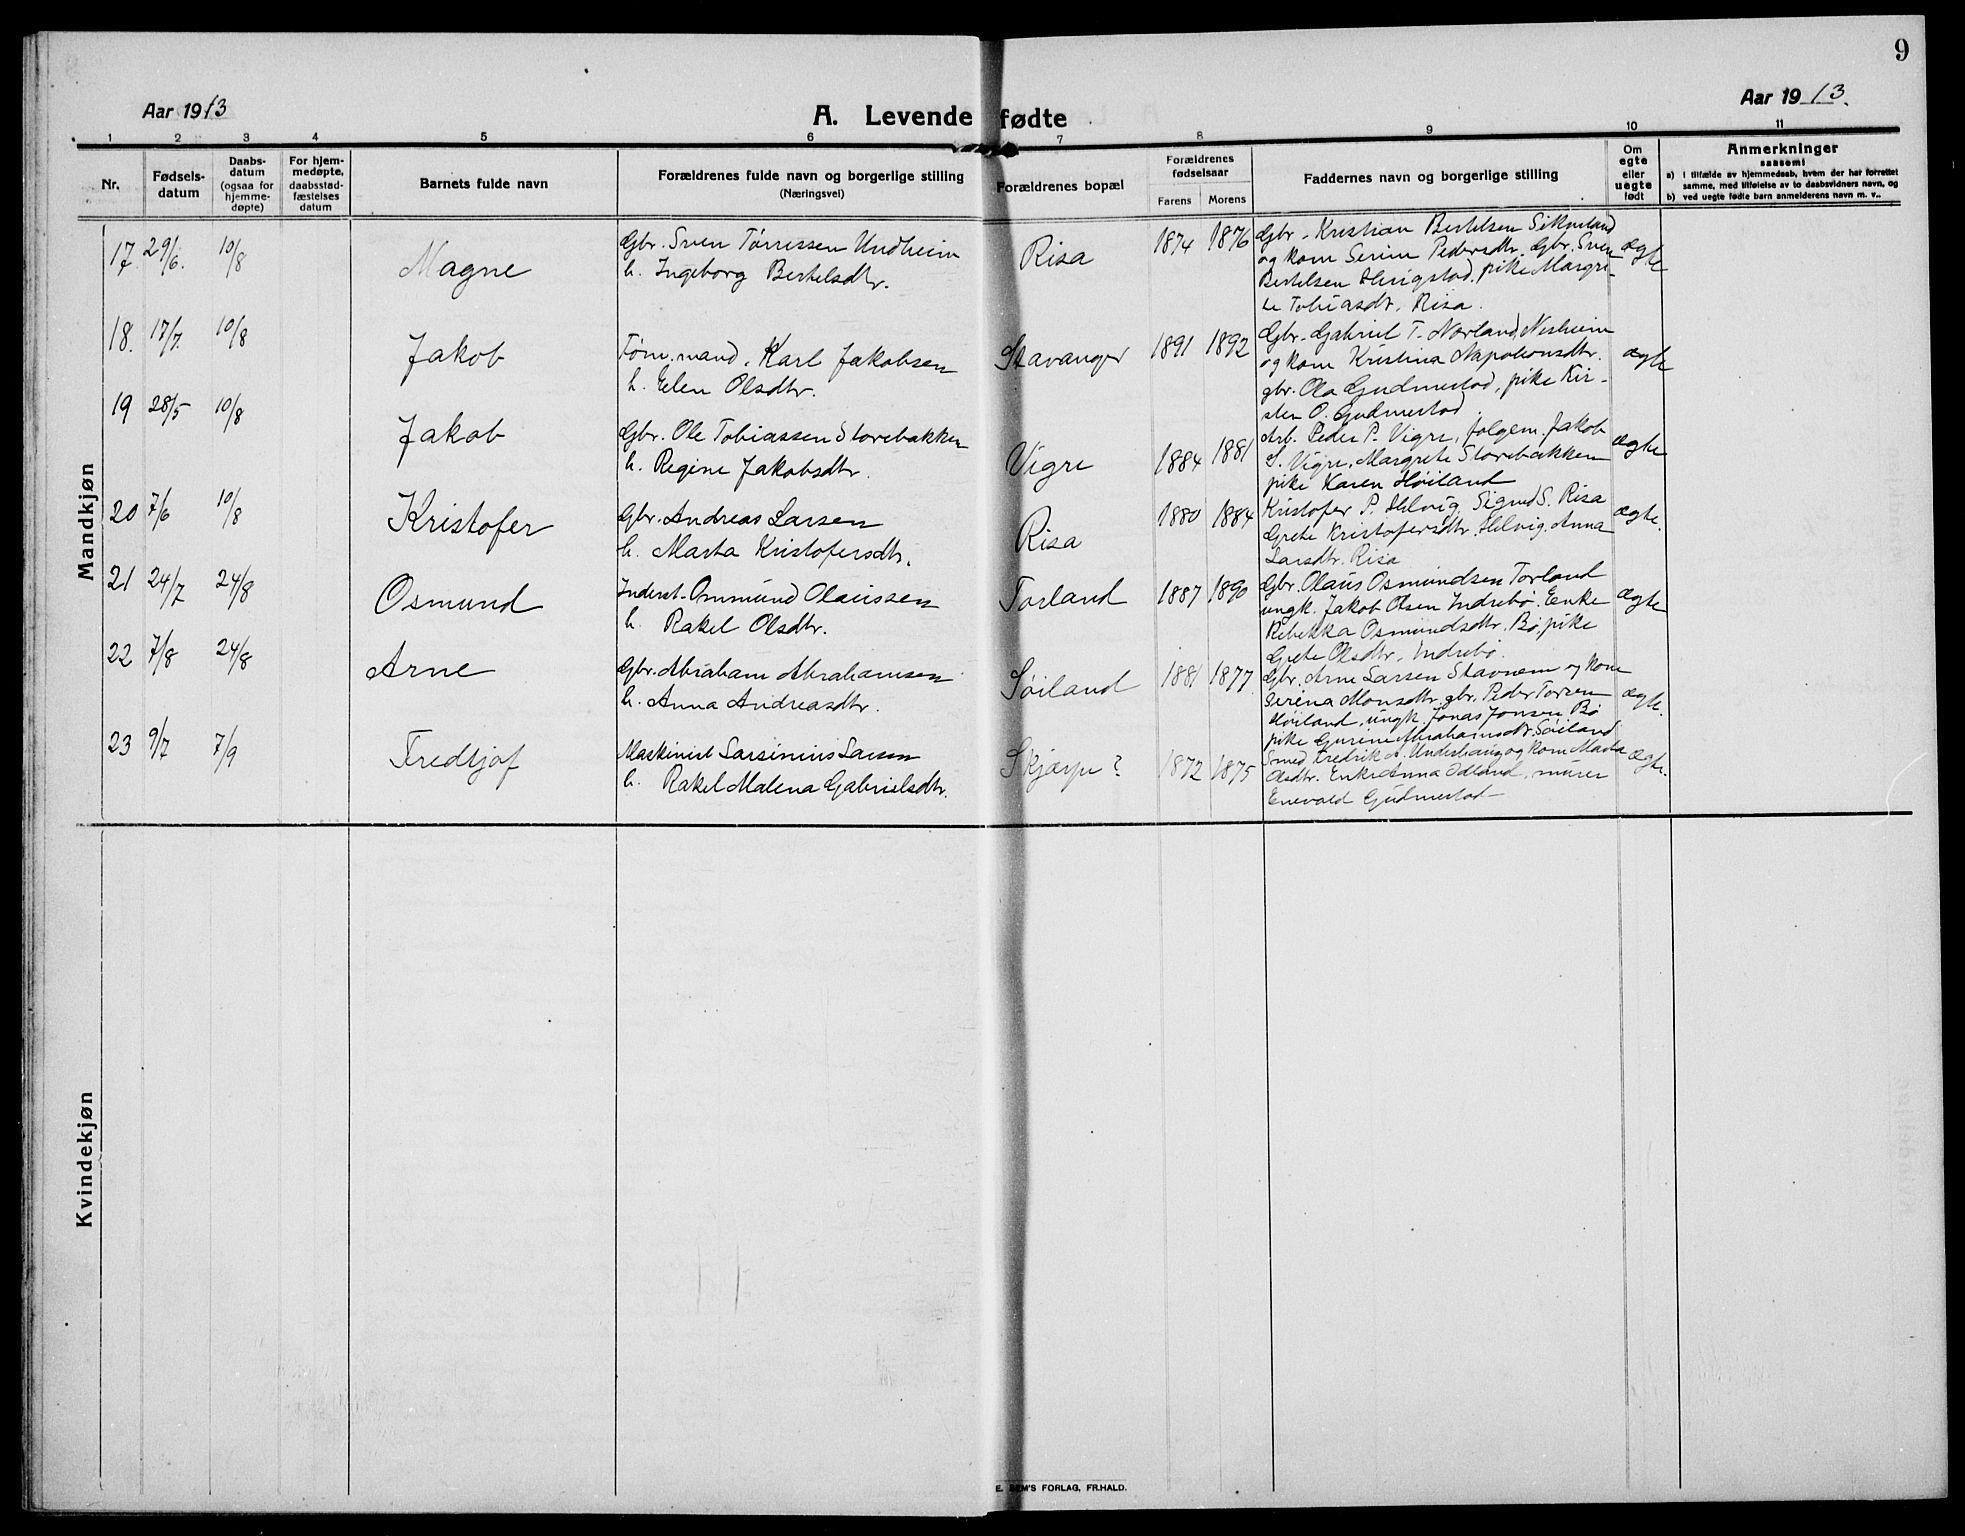 9
Aar 1913
A. Levende fødte
Aar 1913.
1 2 3 4 5 6 7 8 9 10 11
Nr.
Fødsels-
datum
Daabs-
datum
(ogsaa for
hjemme-
døpte)
For hjem-
medøpte,
daabsstad-
fæstelses
datum
Barnets fulde navn
Forældrenes fulde navn og borgerlige stilling
(Næringsvei)
Forældrenes bopæl
Forældrenes
fødselsaar
Farens Morens
Faddernes navn og borgerlige stilling
Om
egte
eller
uegte
født
Anmerkninger
saasom:
a) i tilfælde av hjemmedaab, hvem der har forrettet
samme, med tilføielse av to daabsvidners navn, og
b) ved uegte fødte barn anmelderens navn m. v..
Mandkjøn
17. 29/6. 10/8 Magne
Gbr. Sven Tørressen Undheim
h. Ingeborg Bertelsdtr.
Risa 1874 1876
Gbr. Kristian Bertelsen
og kone Serine Pedersdtr. Gbr. Sven
Bertelsen Hingstad, pike Margre-
te Tobiasdtr. Risa.
ægte
18. 17/7. 10/8 Jakob
Tøm.mand. Karl Jakobsen
h. Elen Olsdtr.
Stavanger 1891 1892
Gbr. Gabriel T. Norland, Nesheim
og kone Kristina Napoleonsdtr.
gbr. Ola Gudmestad, pike Kir-
sten O. Gudmestad
ægte
19 28/5 10/8 Jakob
Gbr. Ole Tobiassen Storebakken
h. Regine Jakobsdtr.
Vigre 1884 1881
Arb. Peder P. Vigre, folgem. Jakob
S. Vigre. Margrete Storebakken
pike Karen Høiland
ægte
20 7/6 10/8 Kristofer
Gbr. Andreas Larsen
h. Marta Kristofersdtr.
Risa 1880 1884
Kristofer P. Helvig, Sigurd S. Risa
Grete Kristofersdtr. Helvig. Anna
Larsdtr. Risa
ægte.
21 24/7 24/8 Osmund
Inderst. Ommund Olaussen
h. Rakel Olsdtr.
Torland 1887 1890
Gbr. Olaus Osmundsen Torland
ungk. Jakob Olsen Indrebø. Enke
Rebekka Osmundsdtr. Bø, pike
Grete Olsdtr. Indrebø.
ægte
22 7/8 24/8 Arne
Gbr. Abraham Abrahamsen
h. Anna Andreasdtr.
Søiland 1881 1877
Gbr. Arne Larsen Stavnem og kone
Serina Monsdtr. gbr. Peder Torsen
Høiland, ungk. Jonas Jonsen Bø
pike Gurine Abrahamsdtr. Søiland
ægte.
23 9/7 7/9 Fredtjof
Maskinist Larsinius Larsen
h. Rakel Malena Gabrielsdtr.
Skjærpe? 1872 1875
Smed Fredrik A. Underhaug og kone Marta
Olsdtr. Enke Anna Ødland, murer
Enevald Gudmestad
ægte.
Kvindekjøn
E. SEM'S FORLAG, FR.HALD.